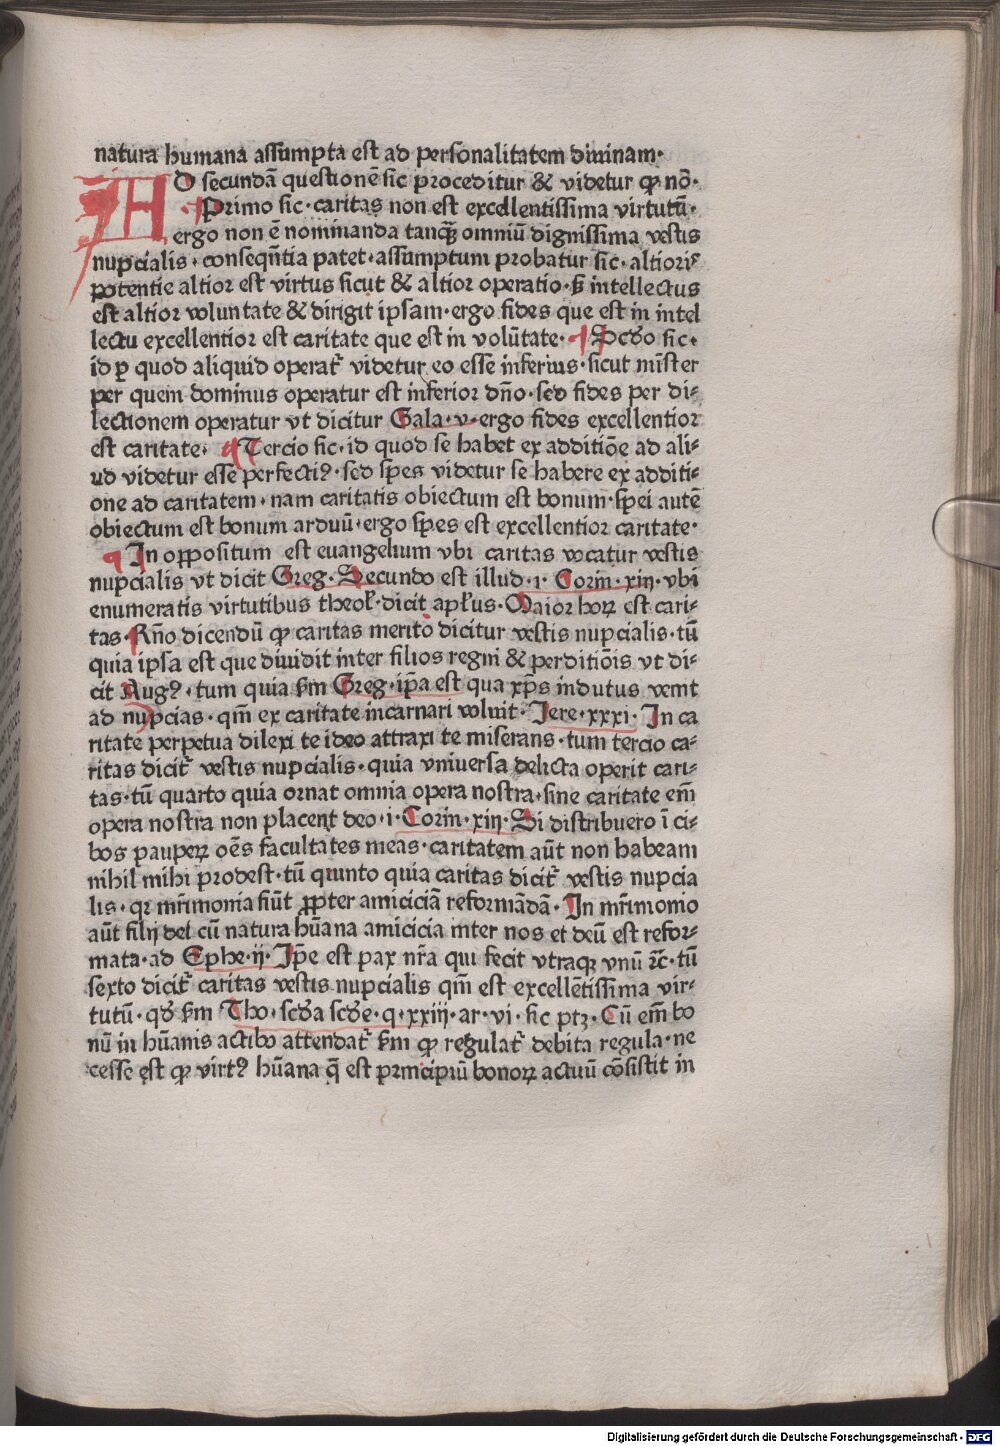 natura humana assumpta est ad personalitatem diuinam·
AD secundā questionē sic proceditur & videtur ꝙ nō·
¶ Primo sic· caritas non est excellentissima virtutū·
ergo non ē nominanda tanqꝫ omniū dignissima vestis
nupcialis· conseqn̄tia patet· assumptum probatur sic· altioris
potentie altior est virtus sicut & altior operatio· sꝫ intellectus
est altior voluntate & dirigit ipsam· ergo fides que est in intel
lectu excellentior est caritate que est in volūtate· ¶ Scd̄o sic·
id ꝑ quod aliquid operat᷑ videtur eo esse inferius· sicut minister
per quem dominus operatur est inferior dn̄o· sed fides per di⸗
lectionem operatur vt dicitur Gala· v· ergo fides excellentior
est caritate· ¶ Tercio sic· id quod se habet ex additiōe ad ali⸗
ud videtur esse perfectiꝰ· sed spes videtur se habere ex additi⸗
one ad caritatem· nam caritatis obiectum est bonum· spei autē
obiectum est bonum arduū· ergo spes est excellentior caritate·
¶ In oppositum est euangelium vbi caritas vocatur vestis
nupcialis vt dicit Greg· Secundo est illud· i· Corin̄· xiij· vbi
enumeratis virtutibus theoł· dicit apl̄us· Maior horꝝ est cari⸗
tas· Rn̄o dicendū ꝙ caritas merito dicitur vestis nupcialis· tū
quia ipsa est que diuidit inter filios regni & perditiōis vt di⸗
cit Augꝰ· tum quia sm̄ Greg· ip̄a est qua xp̄s indutus venit
ad nupcias· qm̄ ex caritate incarnari voluit· Jere· xxxi· In ca
ritate perpetua dilexi te ideo attraxi te miserans· tum tercio ca⸗
ritas dicit᷑ vestis nupcialis· quia vniuersa delicta operit cari⸗
tas· tū quarto quia ornat omnia opera nostra· sine caritate em̄
opera nostra non placent deo· i· Corin̄· xiij· Si distribuero ī ci⸗
bos pauperꝝ oēs facultates meas· caritatem aūt non habeam
nihil mihi prodest· tū quinto quia caritas dicit᷑ vestis nupcia
lis· qr mr̄imonia fiūt ꝓpter amiciciā reformādā· In mr̄imonio
aūt filij dei cū natura hūana amicicia inter nos et deū est refor⸗
mata· ad Ephe· ij· Ip̄e est pax nr̄a qui fecit vtraqꝫ vnū ꝛc̄· tū
sexto dicit᷑ caritas vestis nupcialis qm̄ est excellētissima vir⸗
tutū· qd̄ sm̄ Tho· scd̄a scd̄e· q· xxiij· ar· vi· sic ptꝫ· Cū em̄ bo
nū in hūanis actibꝰ attendat᷑ sm̄ ꝙ regulat᷑ debita regula· ne
cesse est ꝙ virtꝰ hūana q̄ est principiū bonorꝝ actuū cōsistit in
Digitalisierung gefördert durch die Deutsche Forschungsgemeinschaft - DFG